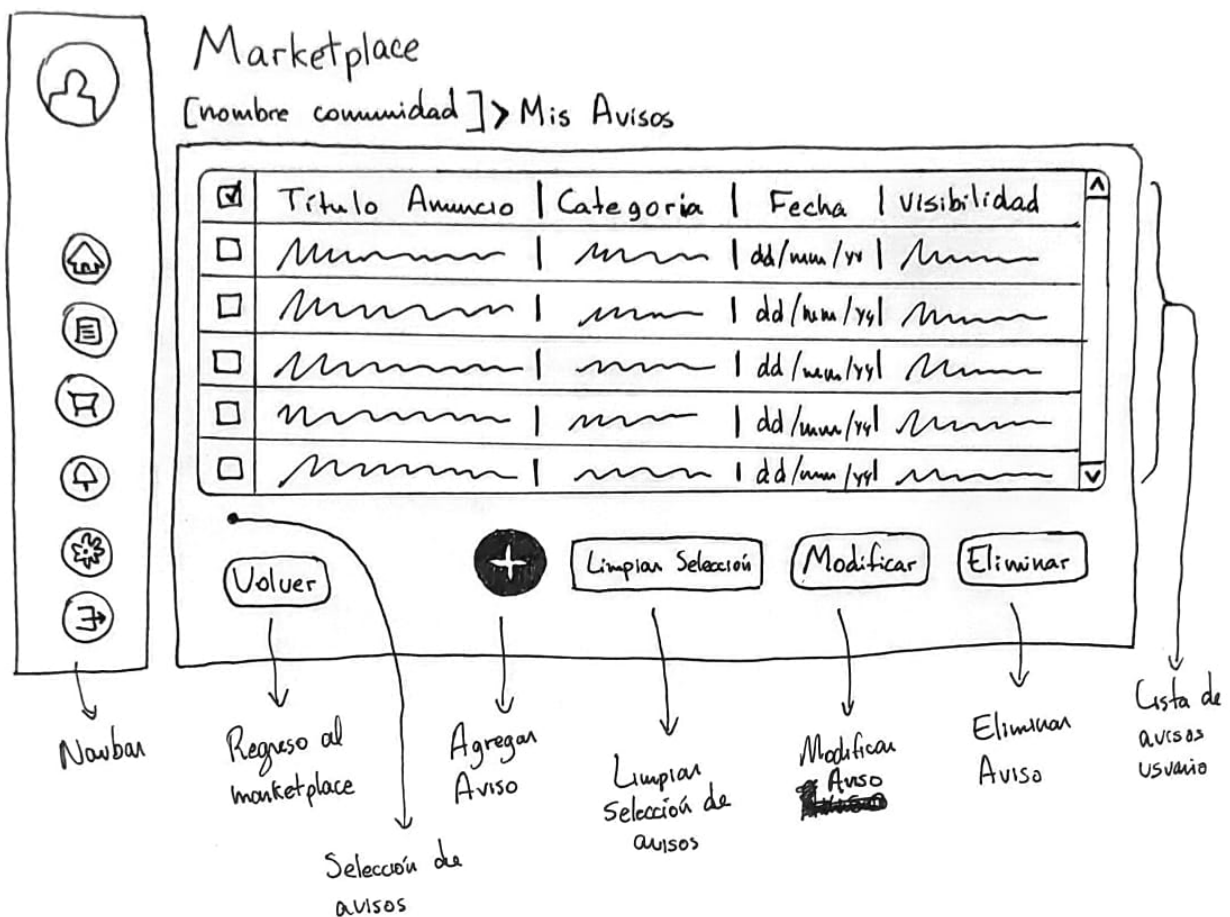 Marketplace
[nombre comunidad] > Mis Avisos
Título Anuncio | Categoria | Fecha | Visibilidad
dd/mm/yy
dd/mm/yy
dd/mm/yy
dd/mm/yy
dd/mm/yy
Volver
+
Limpiar Selección
Modificar
Eliminar
Navbar
Regreso al
marketplace
Selección de
avisos
Agregar
Aviso
Limpiar
Selección de
avisos
Modificar
Aviso
Eliminar
Aviso
Lista de
avisos
usuario